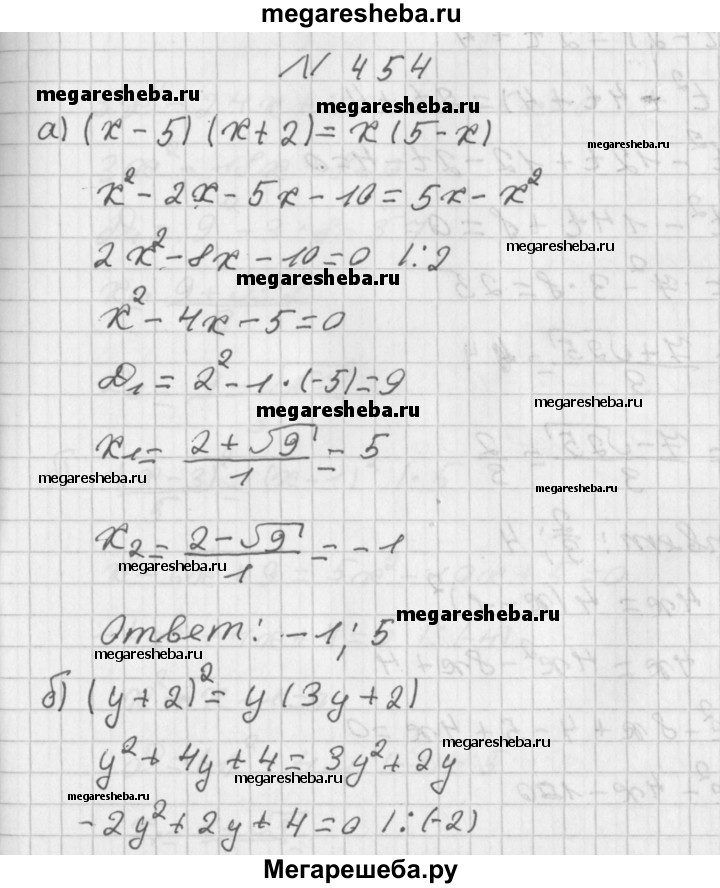 megaresheba.ru
N 454
megaresheba.ru
megaresheba.ru
а) (x - 5) (x + 2) = x (5 - x)
megaresheba.ru
x² - 2x - 5x - 10 = 5x - x²
megaresheba.ru
2x² - 8x - 10 = 0 |:2
megaresheba.ru
x² - 4x - 5 = 0
D₁ = 2² - 1 · (-5) = 9
megaresheba.ru
megaresheba.ru
x₁ = (2 + √9)/1 = 5
megaresheba.ru
megaresheba.ru
x₂ = (2 - √9)/1 = -1
megaresheba.ru
megaresheba.ru
Ответ: -1; 5
megaresheba.ru
б) (y + 2)² = y (3y + 2)
megaresheba.ru
y² + 4y + 4 = 3y² + 2y
megaresheba.ru
megaresheba.ru
-2y² + 2y + 4 = 0 |:(-2)
Мегарешеба.ру